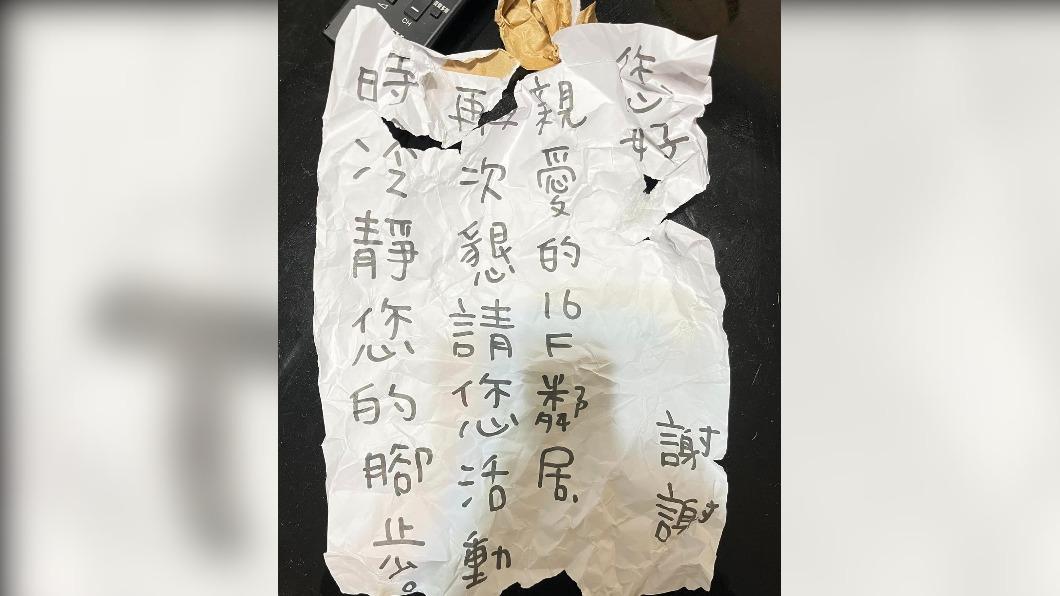 您好
謝謝
親愛的16F鄰居,
再次懇請您活動
時冷靜您的腳步。
CH